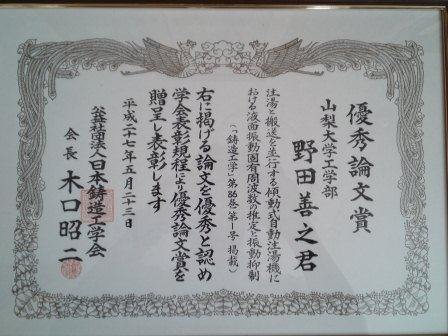 優秀論文賞
山梨大学工学部
野田善之君
注湯と搬送を並行する傾動式自動注湯機に
おける液面振動固有周波数の推定と振動抑制
(「鋳造工学」第86巻第1号掲載)
右に掲げる論文を優秀と認め
学会表彰規程により優秀論文賞を
贈呈し表彰します
平成二十七年五月二十三日
公益社団法人日本鋳造工学会
会長 木口昭二